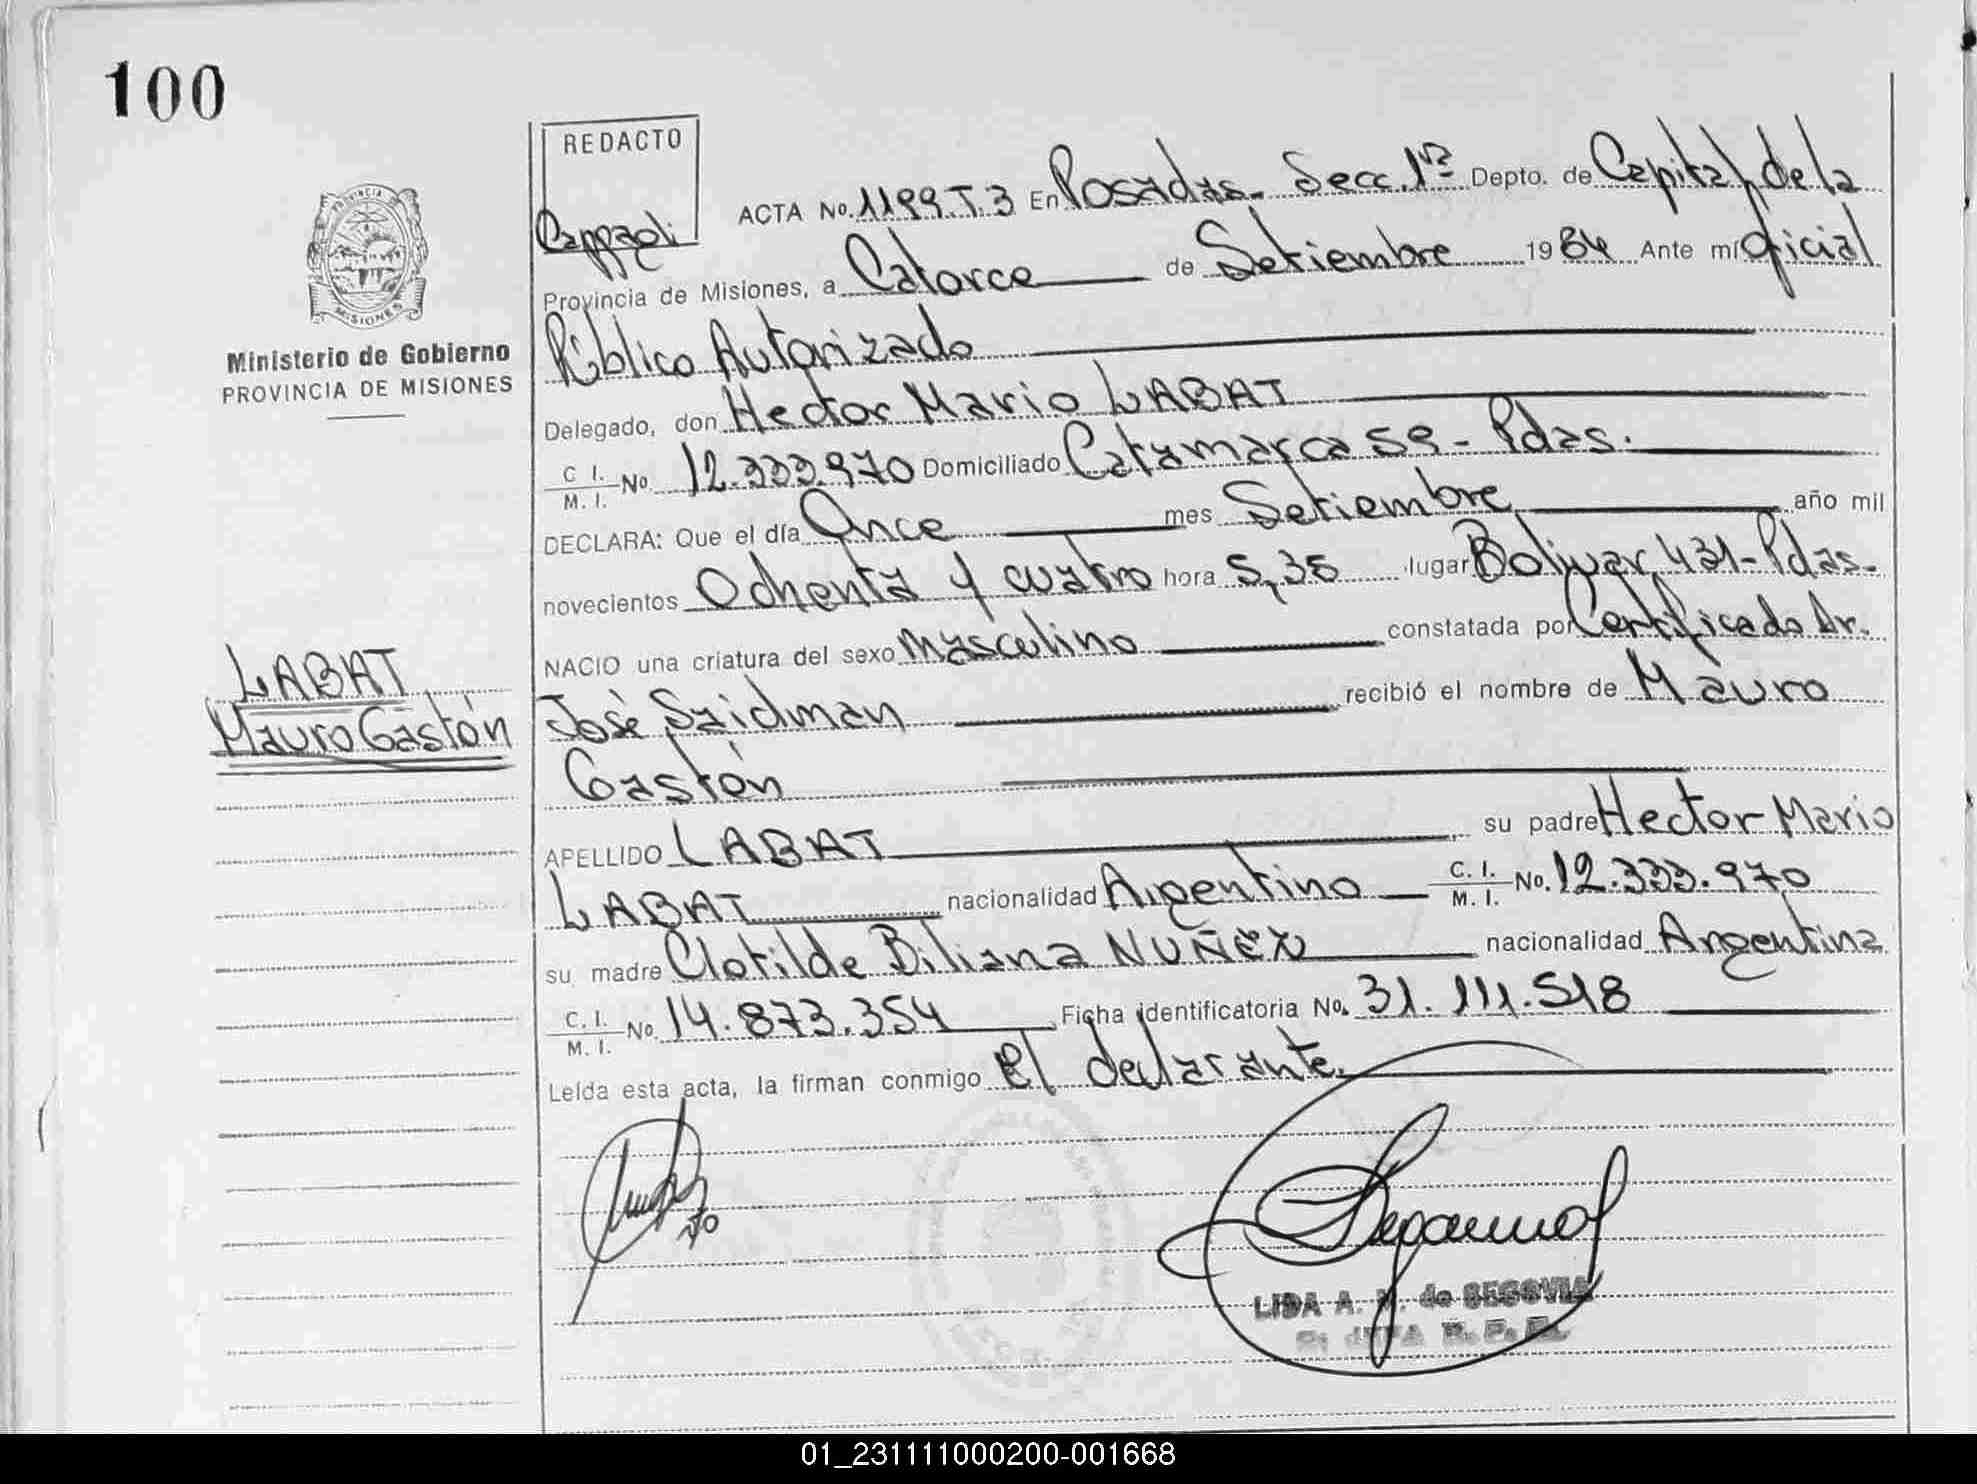 100
REDACTO
Cappzoli
ACTA No. 1199.T.3 En Posadas. Secc. 1ra Depto. de Capital, de la
Provincia de Misiones, a Catorce de Setiembre 1984 Ante mí Oficial
PROVINCIA
MISIONES
Ministerio de Gobierno
PROVINCIA DE MISIONES
Público Autorizado
Delegado, don Hector Mario LABAT
C. I. M. I. No 12.333.970 Domiciliado Catamarca 59 - Pdas.
DECLARA: Que el día Once mes Setiembre año mil
novecientos Ochenta y cuatro hora 5,35 lugar Bolivar 431-Pdas-
NACIO una criatura del sexo masculino constatada por Certificado Dr.
LABAT
Mauro Gastón
José Szidman recibió el nombre de Mauro
Gastón
APELLIDO LABAT su padre Hector Mario
LABAT nacionalidad Argentino C. I. M. I. No. 12.333.970
su madre Clotilde Biliana NUÑEZ nacionalidad Argentina
C. I. M. I. No 14.873.354 Ficha identificatoria No. 31.111.518
Leída esta acta, la firman conmigo el declarante.
LIDA A. de SEGOVIA
JEFA
01_231111000200-001668